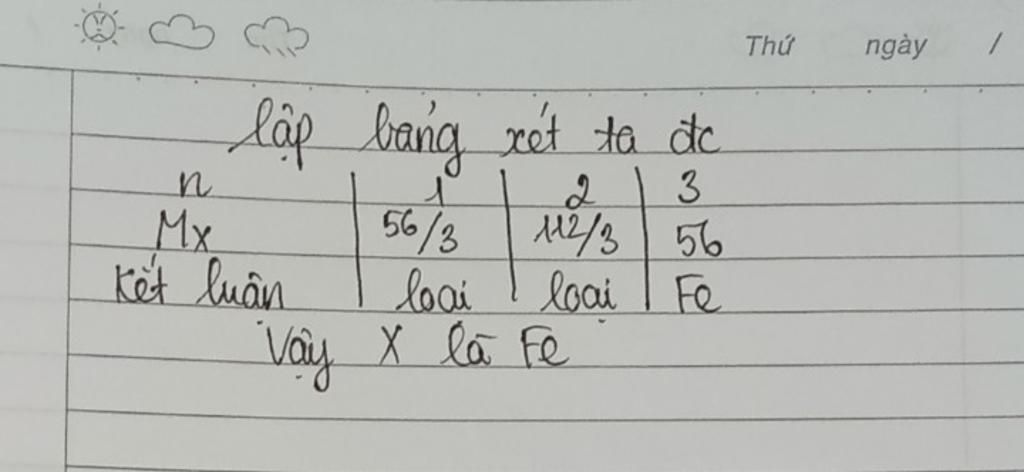 Thứ ngày /
lập bảng xét ta đc
n 1 2 3
Mx 56/3 112/3 56
Kết luận loại loại Fe
Vậy X là Fe